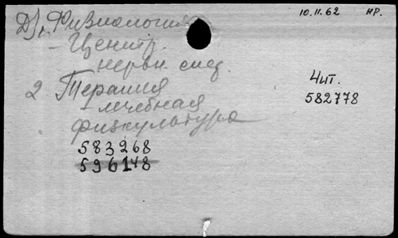 10.11.62 НР.
Д), Физиология
- Центр.
нервн. сист.
Чит.
582778
2 Терапия
- лечебная
физкультура
583268
596148